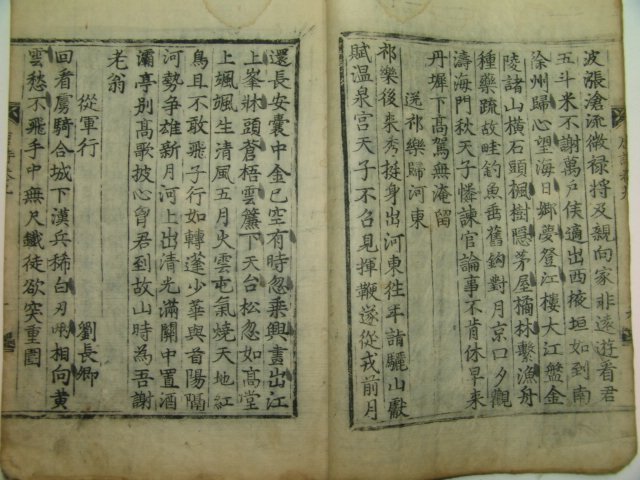 波漲滄流微禄將及親向家非遠遊看君
五斗米不謝萬戶侯適出西掖垣如到南
徐州歸心望海日鄉夢登江樓大江盤金
陵諸山橫石頭楓樹隱茅屋橘林繫漁舟
種藥疏故畦釣魚垂舊鉤對月京口夕觀
濤海門秋天子憐諫官論事不肯休早來
丹墀下高駕無淹留
送祁樂歸河東
祁樂後來秀挺身出河東往年詣驪山獻
賦温泉宮天子不召見揮鞭遂從戎前月
還長安囊中金已空有時忽乘興畫出江
上峯牀頭蒼梧雲簾下天台松忽如高堂
上颯颯生清風五月火雲屯氣燒天地紅
鳥且不敢飛子行如轉蓬少華與首陽隔
河勢争雄新月河上出清光滿關中置酒
灞亭別高歌披心胷君到故山時為吾謝
老翁
從軍行 劉長卿
回看虜騎合城下漢兵稀白刃兩相向黄
雲愁不飛手中無尺鐵徒欲突重圍